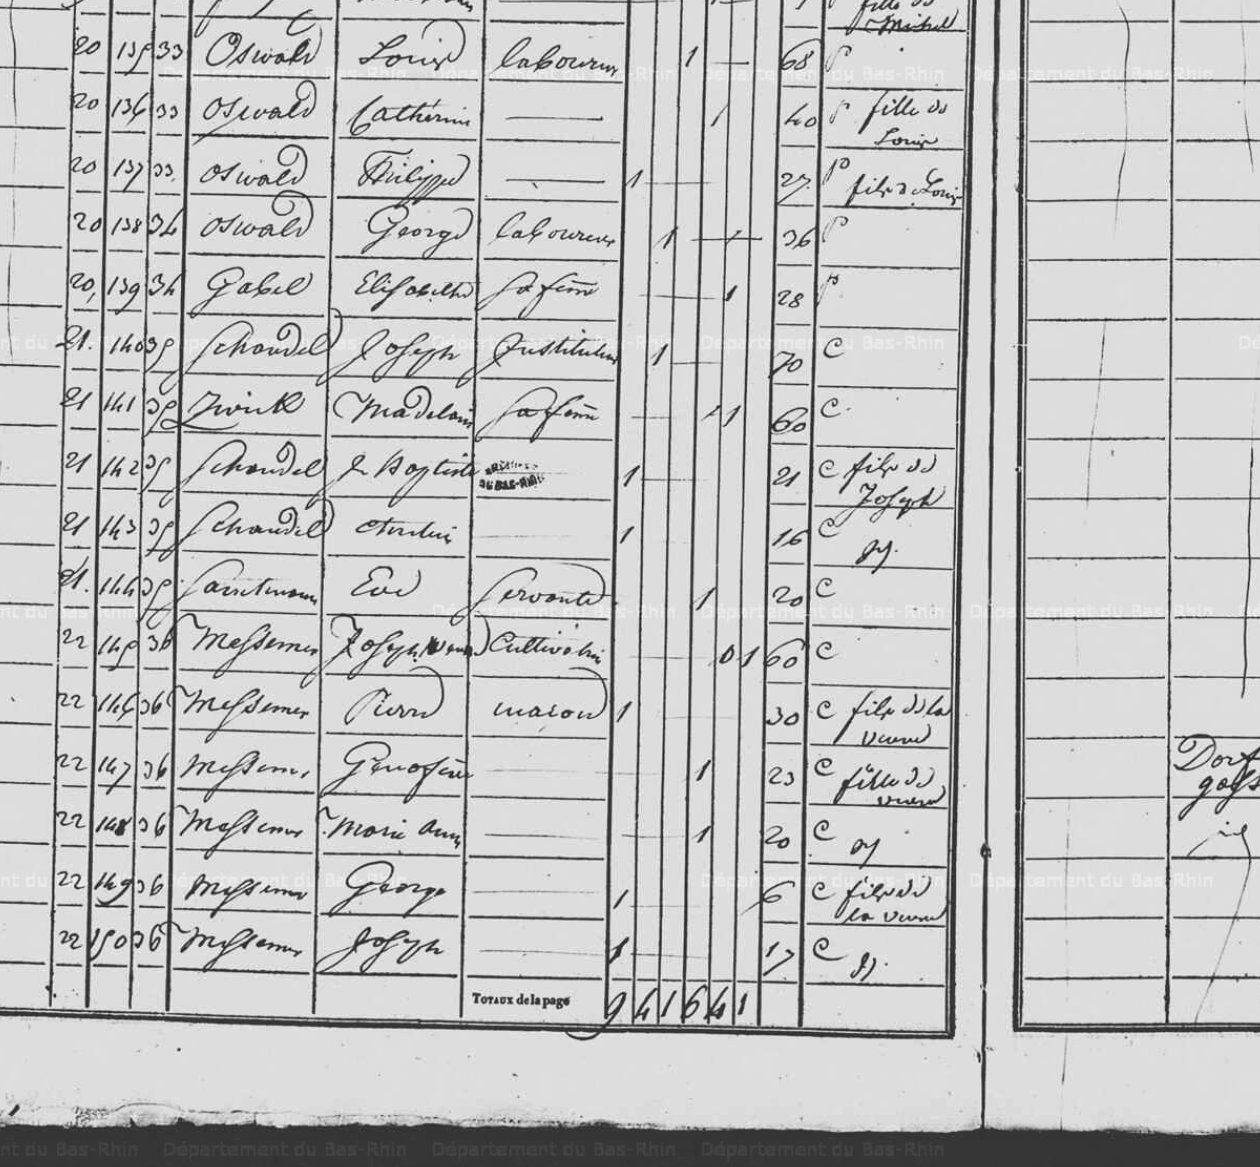 fille de
Michel
20 135 33 Oswald Louis laboureur 1 68 P
20 136 33 Oswald Catherine 1 40 P fille de
Louis
20 137 33 Oswald Philippe 1 27 P
fils de Louis
20 138 34 Oswald George laboureur 1 1 36 P
20 139 34 Gabel Elisabeth sa feme 1 28 P
21 140 35 Schandel Joseph Instituteur 1 70 C
21 141 35 Zwick Madelaine sa feme 1 60 C
21 142 35 Schandel J. Baptiste 1 21 C fils de
Joseph
21 143 35 Schandel Antoine 1 16 C
21 144 35 Eve Servante 1 20 C
22 145 36 Messemer Joseph veuve Cultivatrice 0 1 60 C
22 146 36 Messemer Pierre macon 1 30 C fils de la
veuve
22 147 36 Messemer Genofeve 1 23 C fille de
veuve
22 148 36 Messemer Marie Anne 1 20 C
22 149 36 Messemer George 1 6 C fils de
la veuve
22 150 36 Messemer Joseph 1 17 C
TOTAUX de la page 9 4 1 6 4 1
Dorf
id
Département du Bas-Rhin